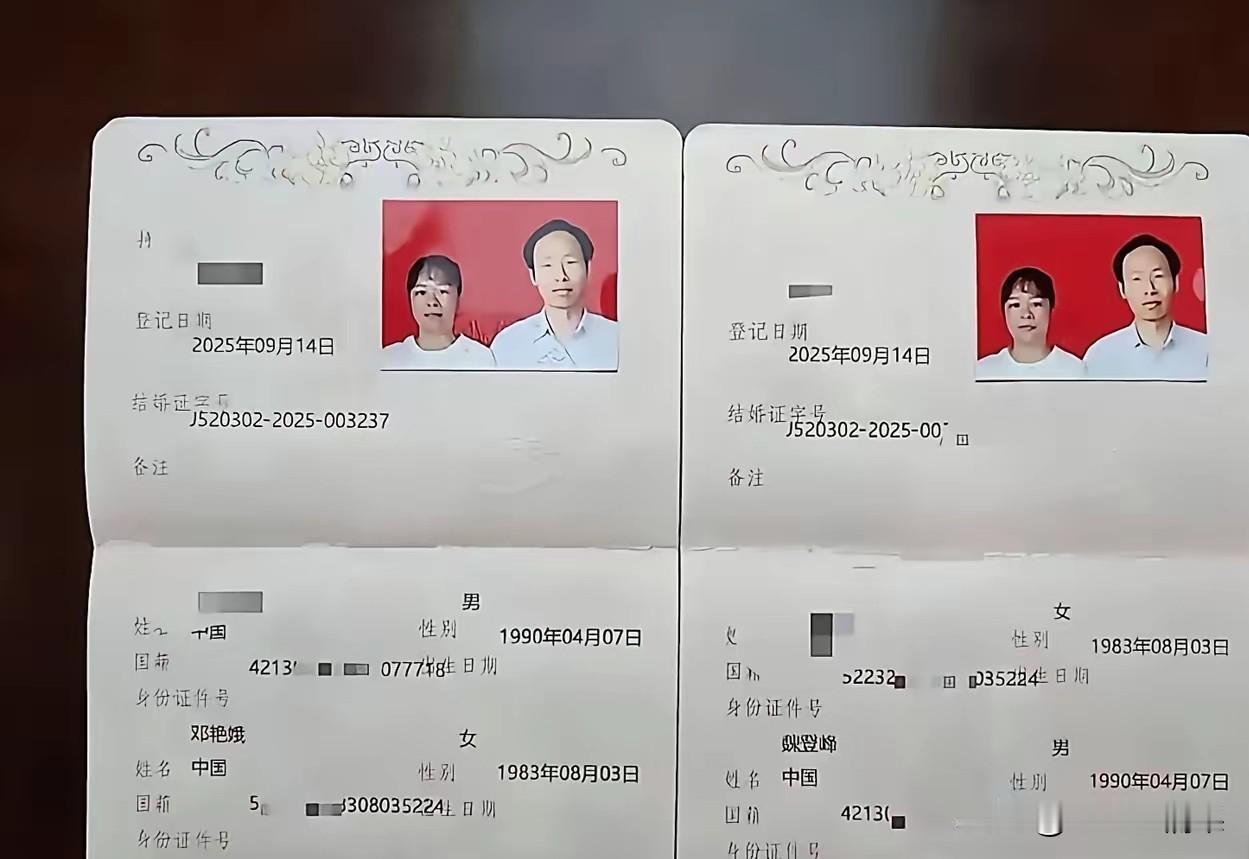 登记日期
2025年09月14日
结婚证字号
J520302-2025-003237
备注
男
中国
性别
1990年04月07日
国籍
4213
077718
出生日期
身份证件号
邓艳娥
女
姓名
中国
性别
1983年08月03日
国籍
5
308035224
出生日期
身份证件号
登记日期
2025年09月14日
结婚证字号
J520302-2025-00
备注
女
性别
1983年08月03日
国
52232
035224
出生日期
身份证件号
魏登峰
男
姓名
中国
性别
1990年04月07日
国籍
4213
身份证件号